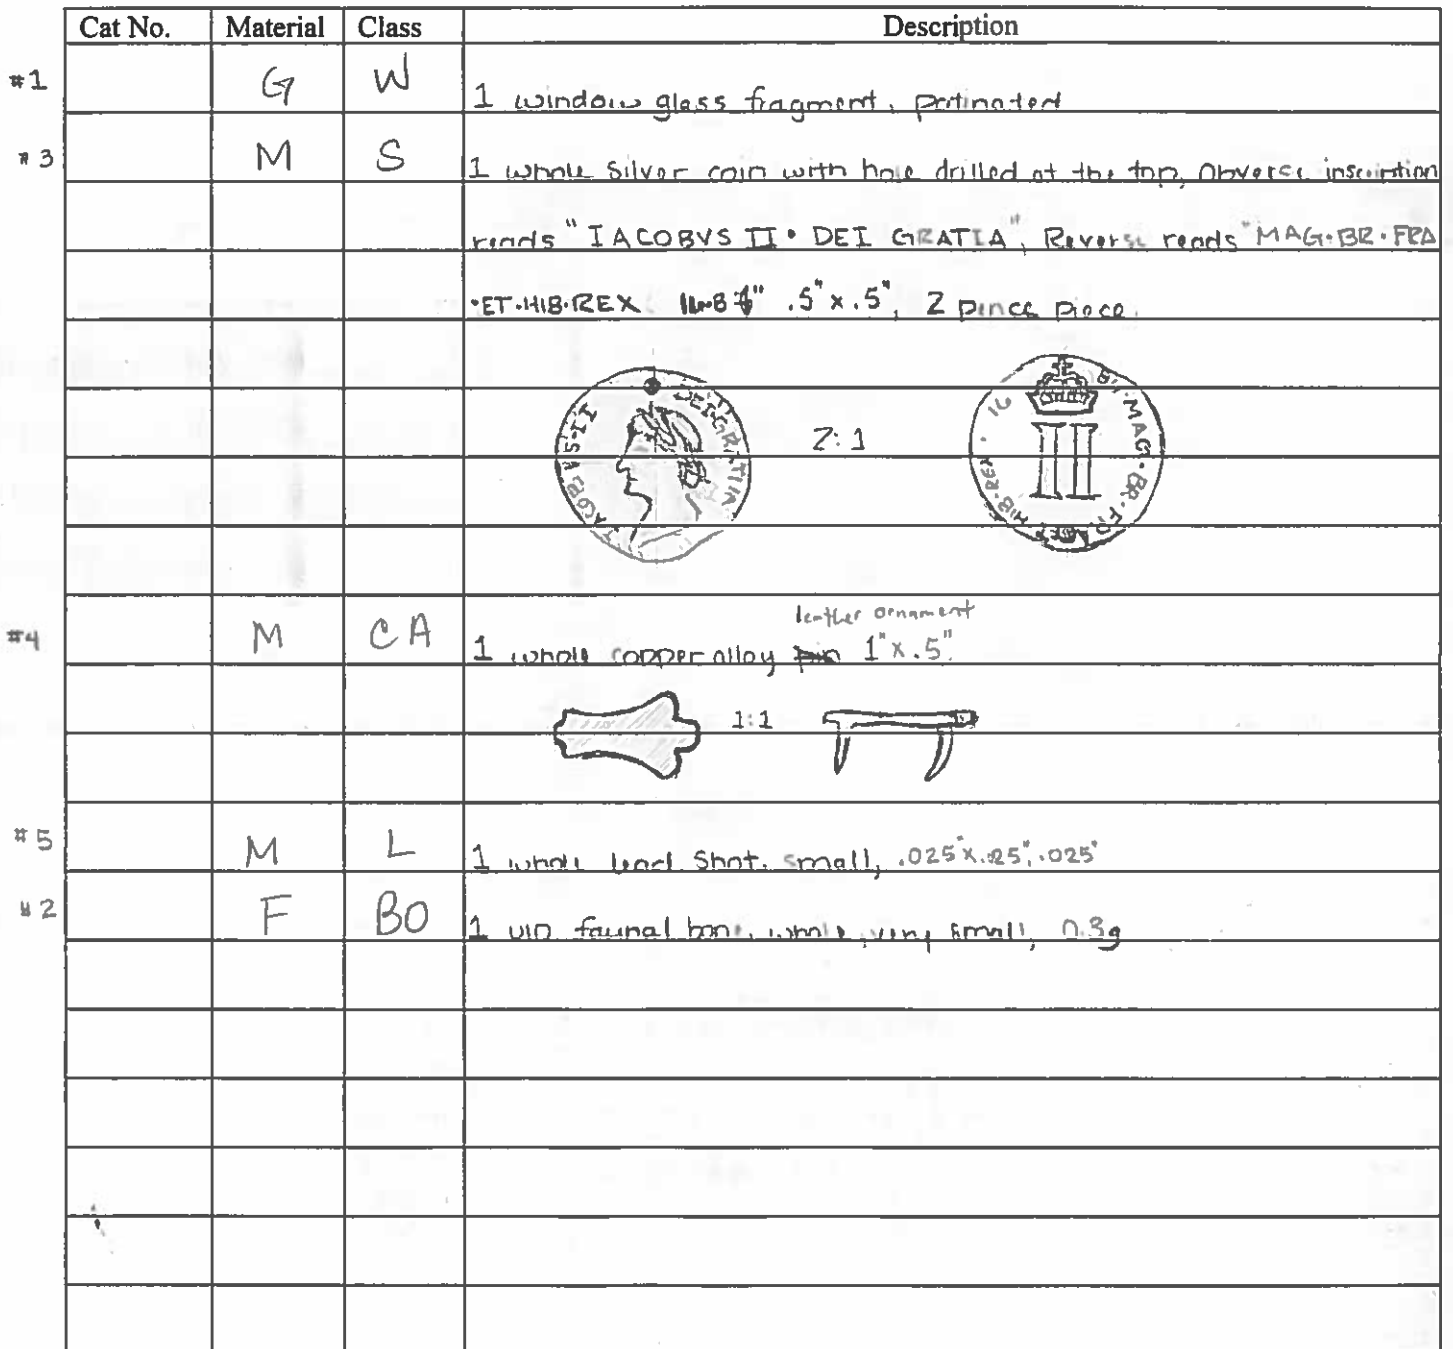 Cat No. Material Class Description
#1 G W 1 window glass fragment, patinated
#3 M S 1 whole silver coin with hole drilled at the top, Obverse inscription
reads "IACOBVS II • DEI GRATIA", Reverse reads "MAG•BR•FRA
•ET•HIB•REX .5" x .5", 2 pence piece.
IACOBVS•II DEI•GRATIA
2:1
16 87•MAG•BR•FRA•ET•HIB•REX•
II
leather ornament
#4 M CA 1 whole copper alloy pin 1" x .5".
1:1
#5 M L 1 whole lead shot, small, .025" x .025", .025"
#2 F BO 1 UID faunal bone, whole, very small, 0.3g